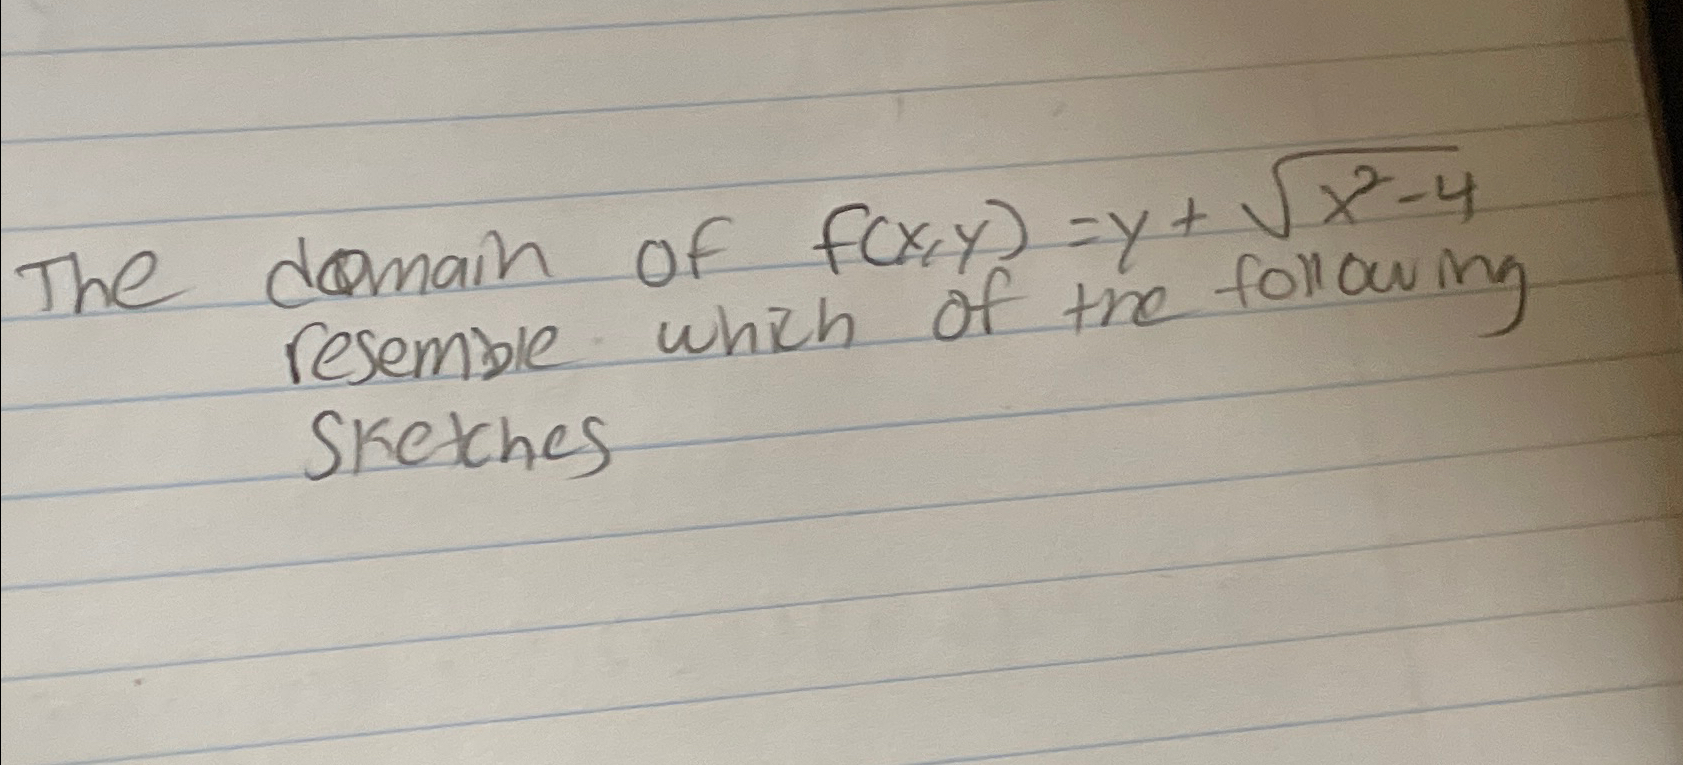 The domain of f(x,y) = y + √x²-4
resemble which of the following
sketches